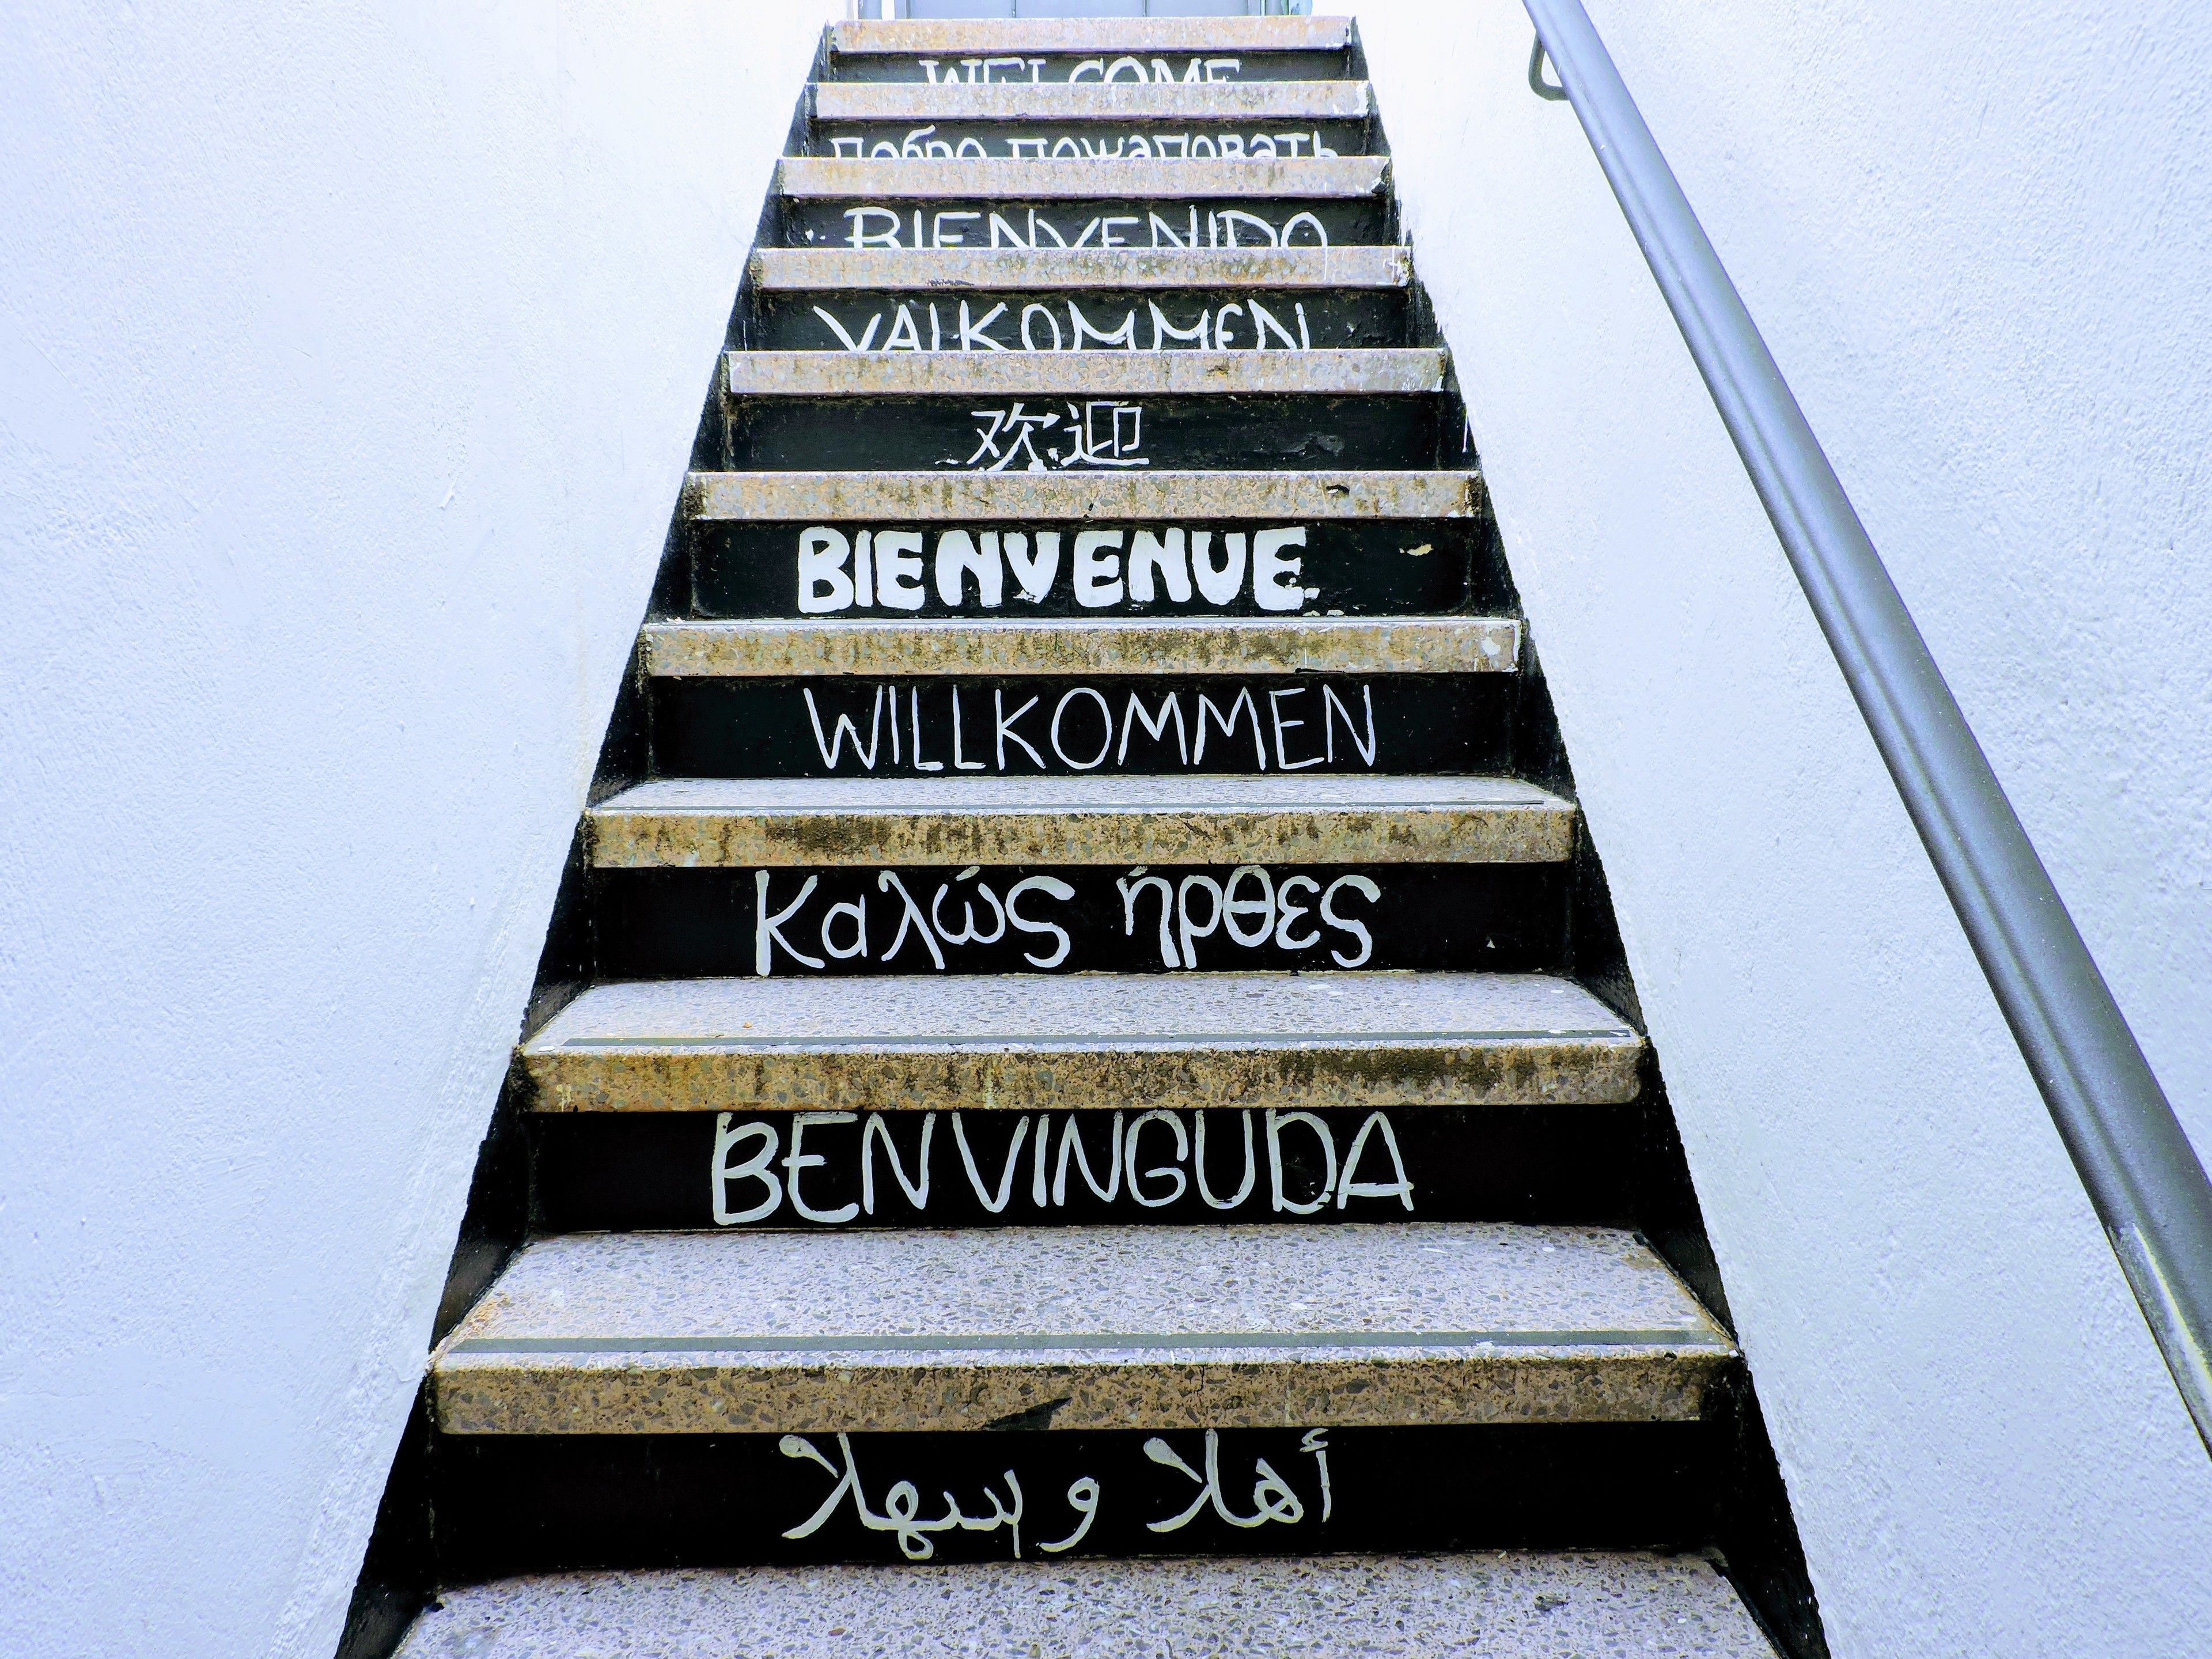 WELCOME
добро пожаловать
BIENVENIDO
VALKOMMEN
欢迎
BIENVENUE
WILLKOMMEN
Καλώς ήρθες
BENVINGUDA
أهلا و سهلا